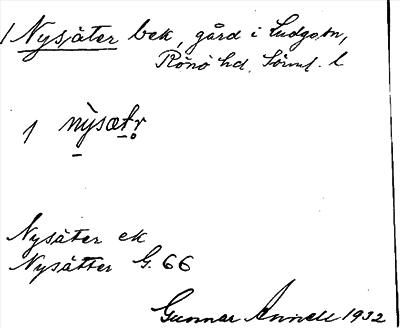 1 Nysäter bek, gård i Ludgo sn,
Rönö hd. Sörml. l
1 nỳsætr̥
Nysäter ek
Nysätter G. 66
Gunnar Annell 1932